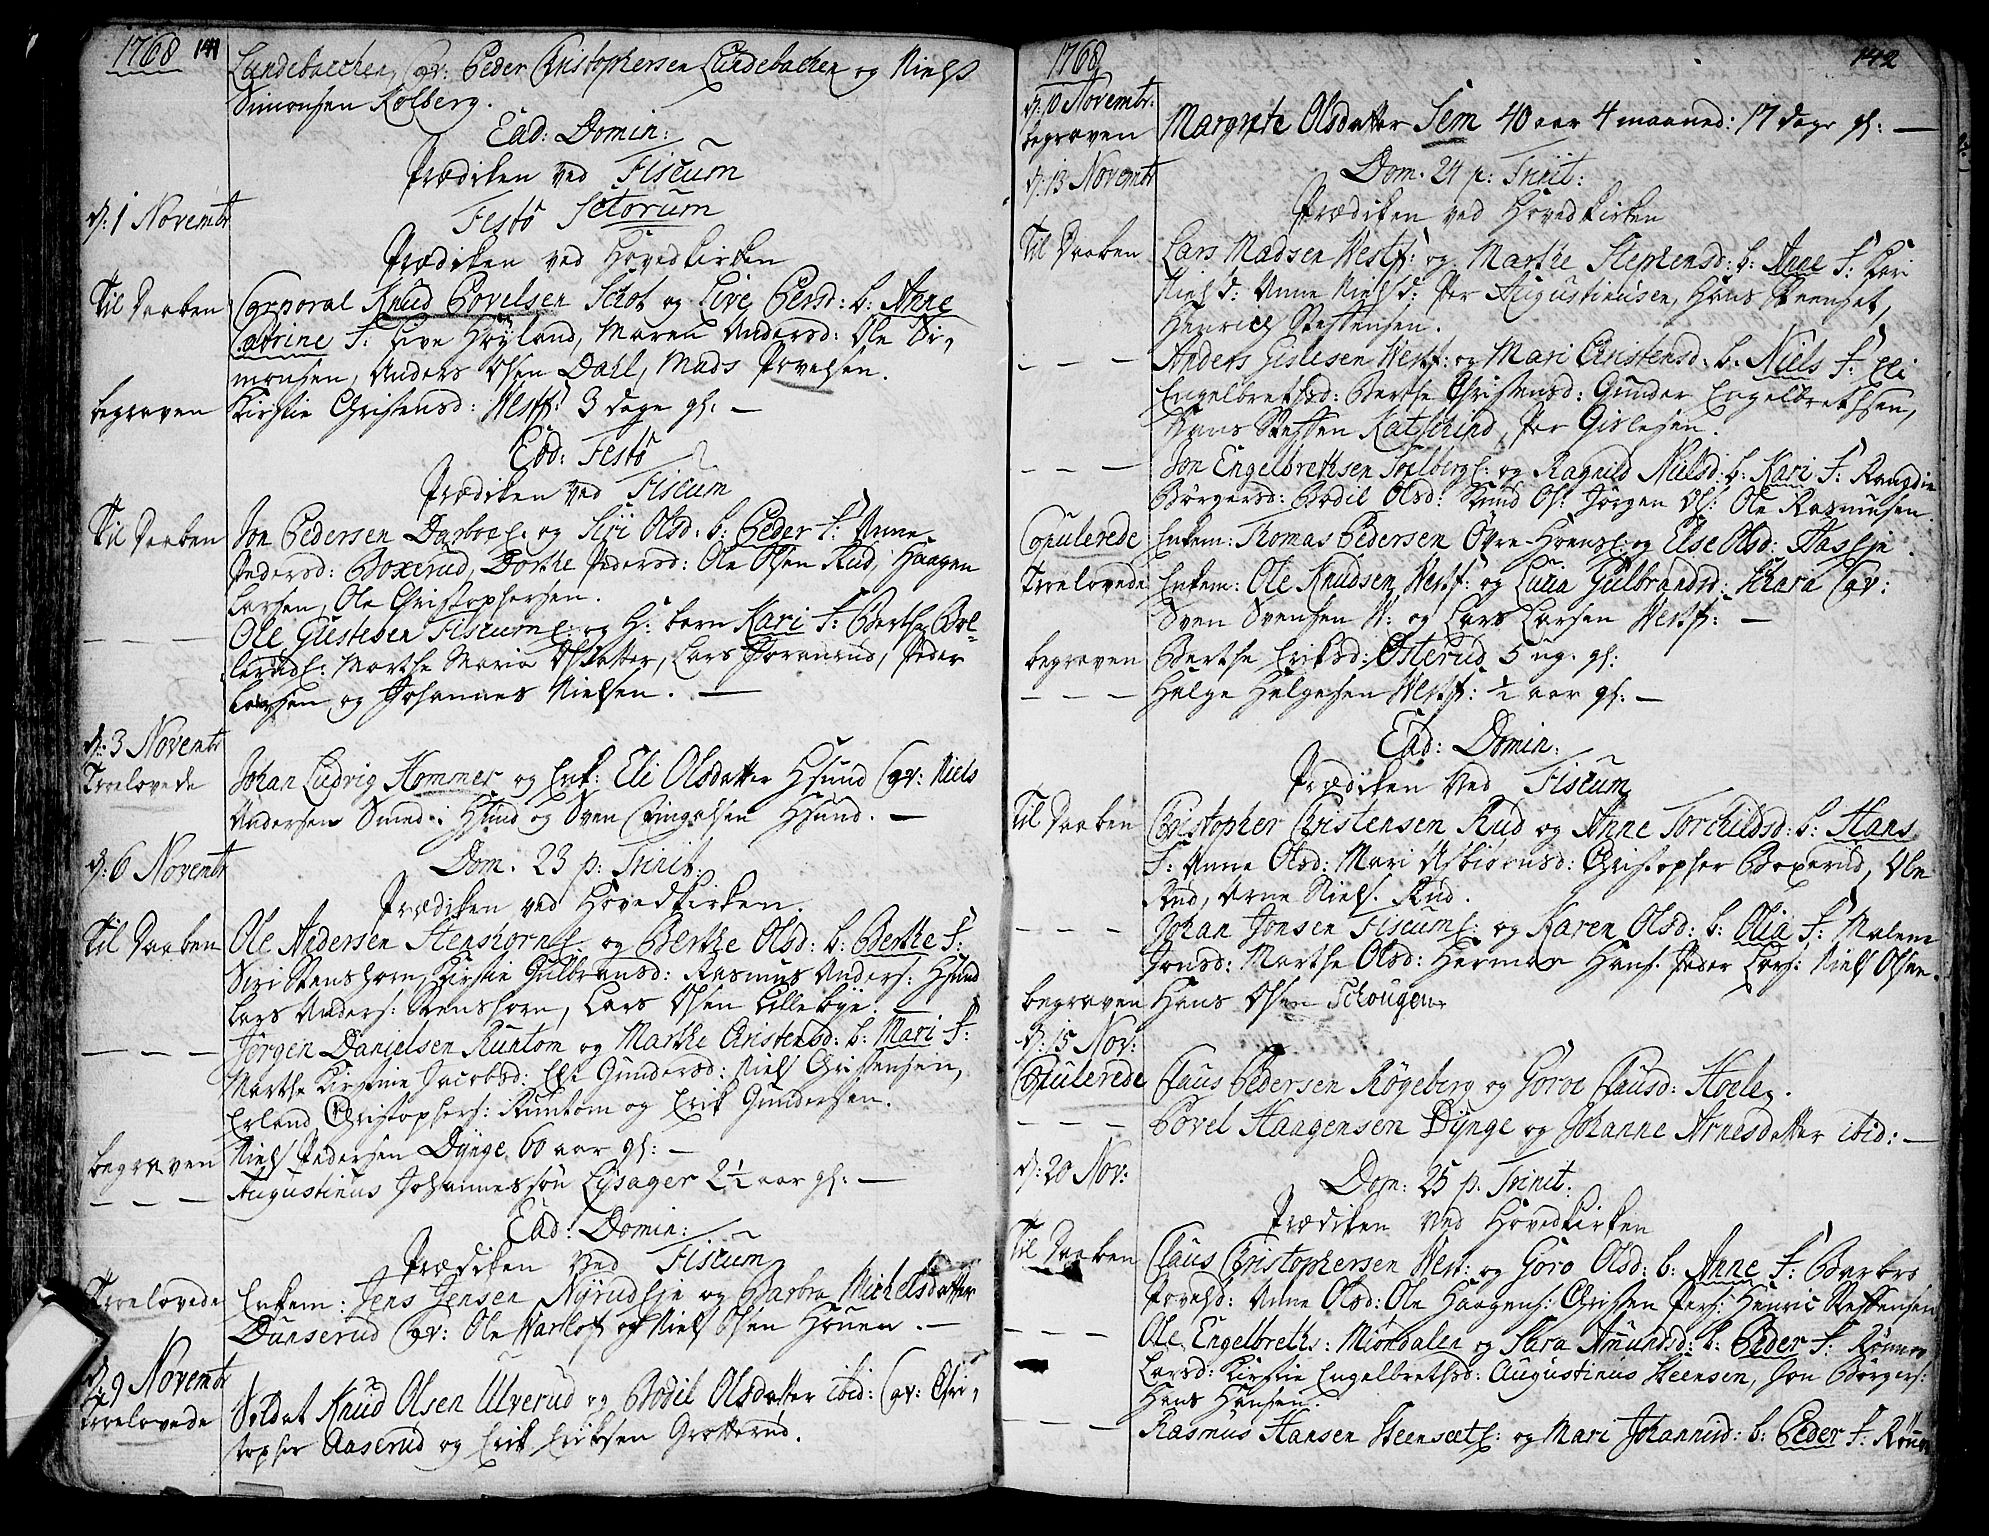 1768 141
Lundebacchen, Cav: Peder Christophersen Lundebachen og Niels
Simonsen Kolberg.
Ead: Domin:
Prædiken ved Fiscum
d: 1 Novembr Festo Sctorum
Prædiken ved Hovedkirken
Til Daaben Corporal Knud Povelsen Schot og Live Persd: b: Anne
Catrine F: Live Høyland, Maren Andersd: Ole Si-
monsen, Anders Olsen Dahl, Mads Povelsen.
begraven Kirstie Christensd: Westf: 3 dage gl: —
Eod: Festo
Prædiken ved Fiscum
Til Daaben Jon Pedersen Darboe og Siri Olsd: b: Peder F: Anne
Pedersd: Boxerud, Dorthe Pedersd: Ole Olsen Rud, Haagen
Larsen, Ole Christophersen.
— — — Ole Gulesen Fiscum og H: barn Kari F: Berthe Bol-
lerud Marthe Maria Olsdatter, Lars Foranrud, Peder
Larsen og Johannes Nielsen. —
d: 3 Novembr
Troelovede Johan Ludvig Hommer og Enk: Eli Olsdatter Hsund Cav: Niels
Andersen Smed: Hsund og Sven Engelsen Hsund. —
d: 6 Novembr Dom. 23 p: Trinit:
Prædiken ved Hovedkirken.
Til Daaben Ole Andersen Stenshorn og Berthe Olsd: b: Berthe F:
Siri Stenshorn, Kirstie Gulbransd: Rasmus Anders: Hsund
Lars Anders: Stenshorn, Lars Olsen Lillebye. —
— — — Jørgen Danielsen Runtom og Marthe Christensd: b: Mari F:
Marthe Kirstine Jacobsd: Else Gundersd: Niels Christensen,
Erland Christophers: Runtom og Erik Gundersen.
begraven Niels Pedersen Dynge 60 aar gl: —
— — — Augustinus Johannessøn Lysager 2 ½ aar gl: —
Ead: Domin:
Prædiken ved Fiscum
Troelovede Enkem: Jens Jensen Nyrud Eje og Barbra Michelsdatter
Dunserud Cav: Ole Varlof og Niels Olsen Houen. —
d: 9 Novembr
Troelovede Soldat Knud Olsen Ulverud og Bodil Olsdatter ibid: Cav: Chri-
stopher Aaserud og Erik Eriksen Grøtterud.
1768 142
d: 10 Novembr:
begraven Margrete Olsdatter Sem 40 aar 4 maaned: 17 dage gl: —
d: 13 Novembr Dom. 24 p: Trinit:
Prædiken ved Hovedkirken
Til Daaben Lars Madsen Westf: og Marthe Stephensd: b: Anne F: Kari
Nielsd: Anne Nielsd: Per Augustinusen, Hans Steenset,
Henrich Steffensen.
— — — Anders Gislesen Westf: og Mari Christensd: b: Niels F: Eli
Engelbrethsd: Berthe Christensd: Gunder Engelbrethsen,
Hans Steffen Katfchind, Per Gislesen.
— — — Jon Engelbrethsen Foelberg og Ragnild Nielsd: b: Kari F: Rangdie
Børgersd: Bodil Olsd: Knud Ols: Jørgen Ols: Ole Rasmusen
Copulerede Enkem: Thomas Pedersen Øvre-Hoens og Else Olsd: Hasle eje.
Troelovede Enkem: Ole Knudsen Westf: og Lucia Gulbrandsd: Skara Cav:
Sven Svensen W: og Lars Larsen Westf: —
begraven Berthe Eriksd: Østerud 5 ug. gl:
— — — Helge Helgesen Westf: ½ aar gl: —
Ead: Domin:
Prædiken ved Fiscum
Til Daaben Christopher Christensen Rud og Anne Torchildsd: b: Hans
F: Anne Olsd: Mari Asbiørnsd: Christopher Boxerud, Ole
Rud, Arne Niels. Rud.
— — — Johan Jonsen Fiscum og Karen Olsd: b: Olia F: Malene
Jonsd: Marthe Olsd: Herman Hans. Peder Lars: Niels Olsen.
begraven Hans Olsen Schougen
d: 15 Nov:
Copulerede Claus Pedersen Røgeberg og Goroe Clausd: Hoele.
— — — Povel Haagensen Dynge og Johanne Arnesdatter ibid: —
d: 20 Nov: Dom: 25 p. Trinit:
Prædiken ved Hovedkirken
Til Daaben Claus Christophersen West: og Goro Olsd: b: Anne F: Barbro
Povelsd: Anne Olsd: Ole Haagens: Christen Pers: Henric Steffensen
— — — Ole Engelbreths: Miøndalen og Sara Amundsd: b: Peder F: Rønnov
Larsd: Kirstie Engelbrethsd: Augustinus Steensen, Jon Børgers:
Hans Hansen.
— — — Rasmus Hansen Steensæt og Mari Johannisd: b: Peder F: Rønnov